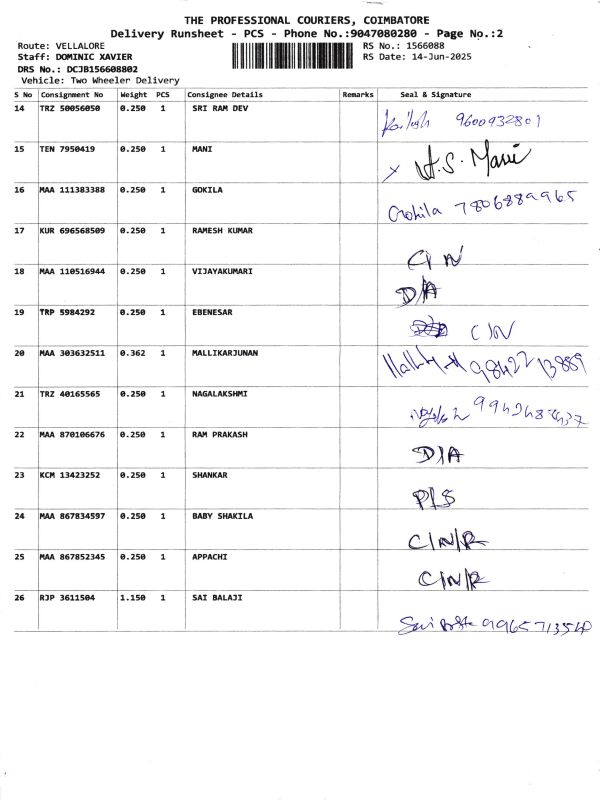 THE PROFESSIONAL COURIERS, COIMBATORE
Delivery Runsheet - PCS - Phone No.:9047080280 - Page No.:2
Route: VELLALORE RS No.: 1566088
Staff: DOMINIC XAVIER RS Date: 14-Jun-2025
DRS No.: DCJB156608802
Vehicle: Two Wheeler Delivery
S No Consignment No Weight PCS Consignee Details Remarks Seal & Signature
14 TRZ 50056050 0.250 1 SRI RAM DEV
9600932801
15 TEN 7950419 0.250 1 MANI
x H.S. Mani
16 MAA 111383388 0.250 1 GOKILA
Gokila 7806889965
17 KUR 696568509 0.250 1 RAMESH KUMAR
C/N
18 MAA 110516944 0.250 1 VIJAYAKUMARI
D/A
19 TRP 5984292 0.250 1 EBENESAR
C/N
20 MAA 303632511 0.362 1 MALLIKARJUNAN
9842213889
21 TRZ 40165565 0.250 1 NAGALAKSHMI
22 MAA 870106676 0.250 1 RAM PRAKASH
D/A
23 KCM 13423252 0.250 1 SHANKAR
P/S
24 MAA 867834597 0.250 1 BABY SHAKILA
C/N/R
25 MAA 867852345 0.250 1 APPACHI
C/N/R
26 RJP 3611504 1.150 1 SAI BALAJI
Sai